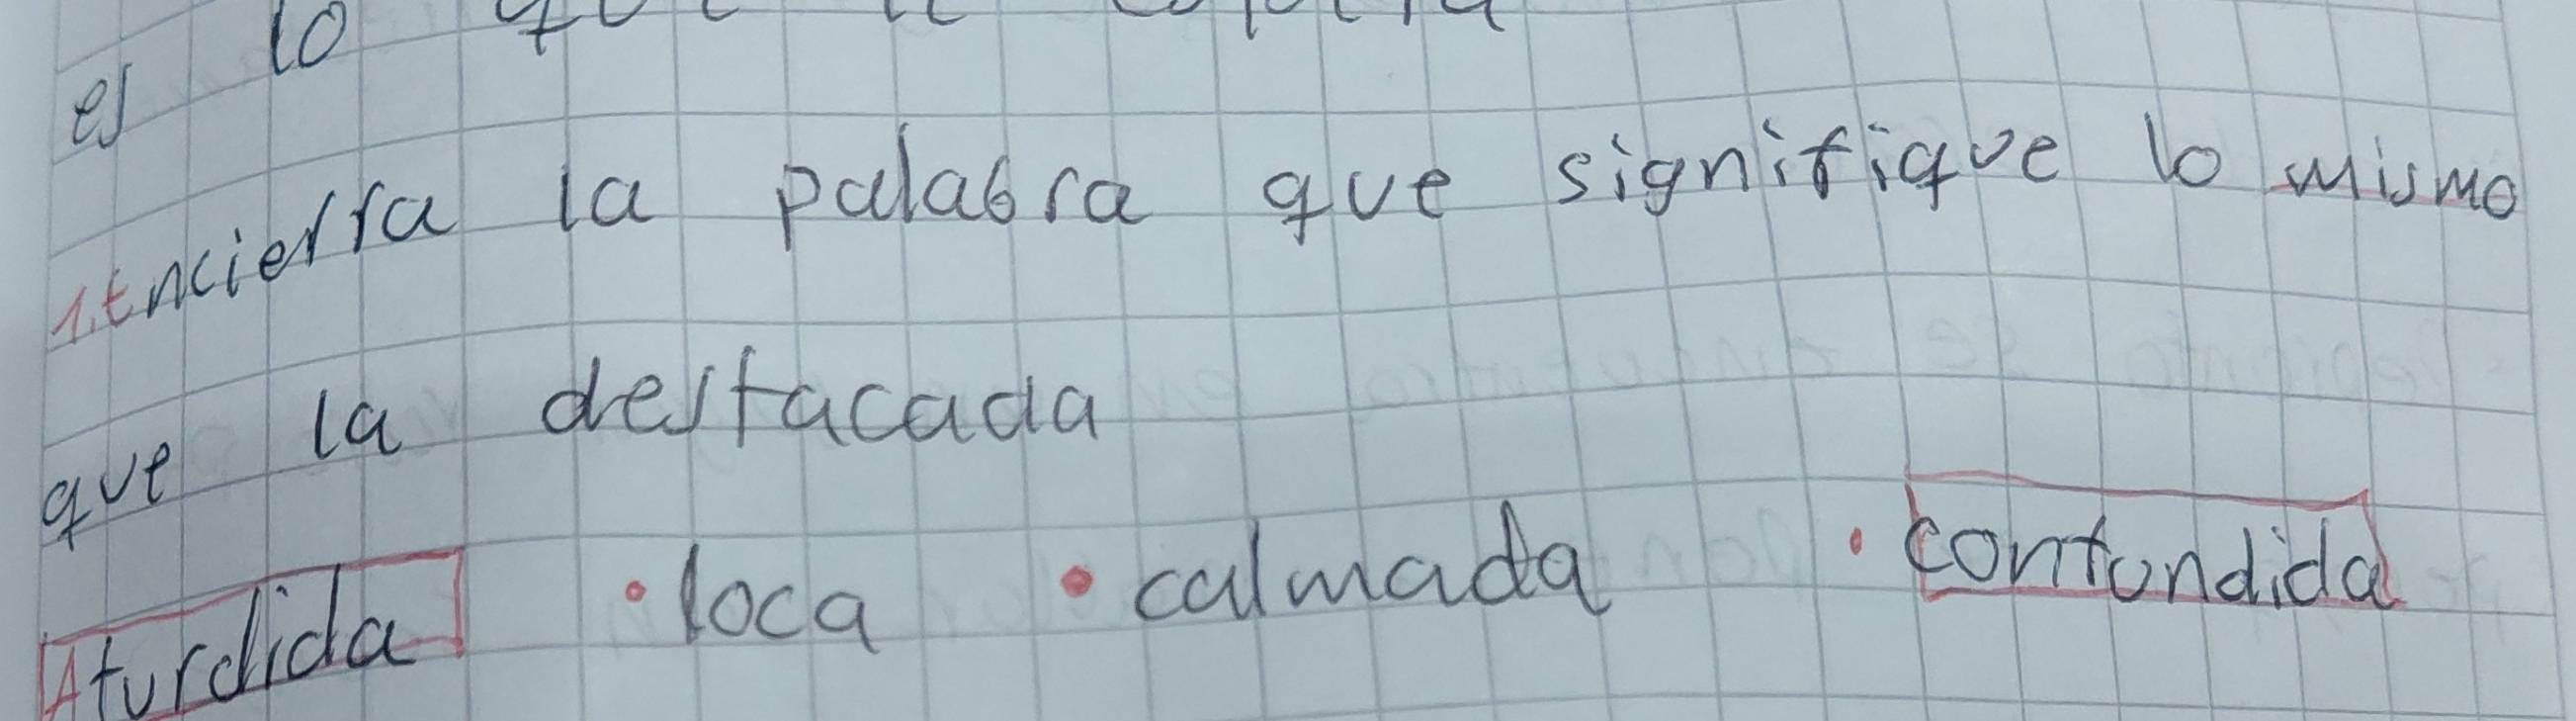 es lo que
1. Encierra la palabra que signifique lo mismo
que la destacada
Aturdida • loca • calmada • confundida